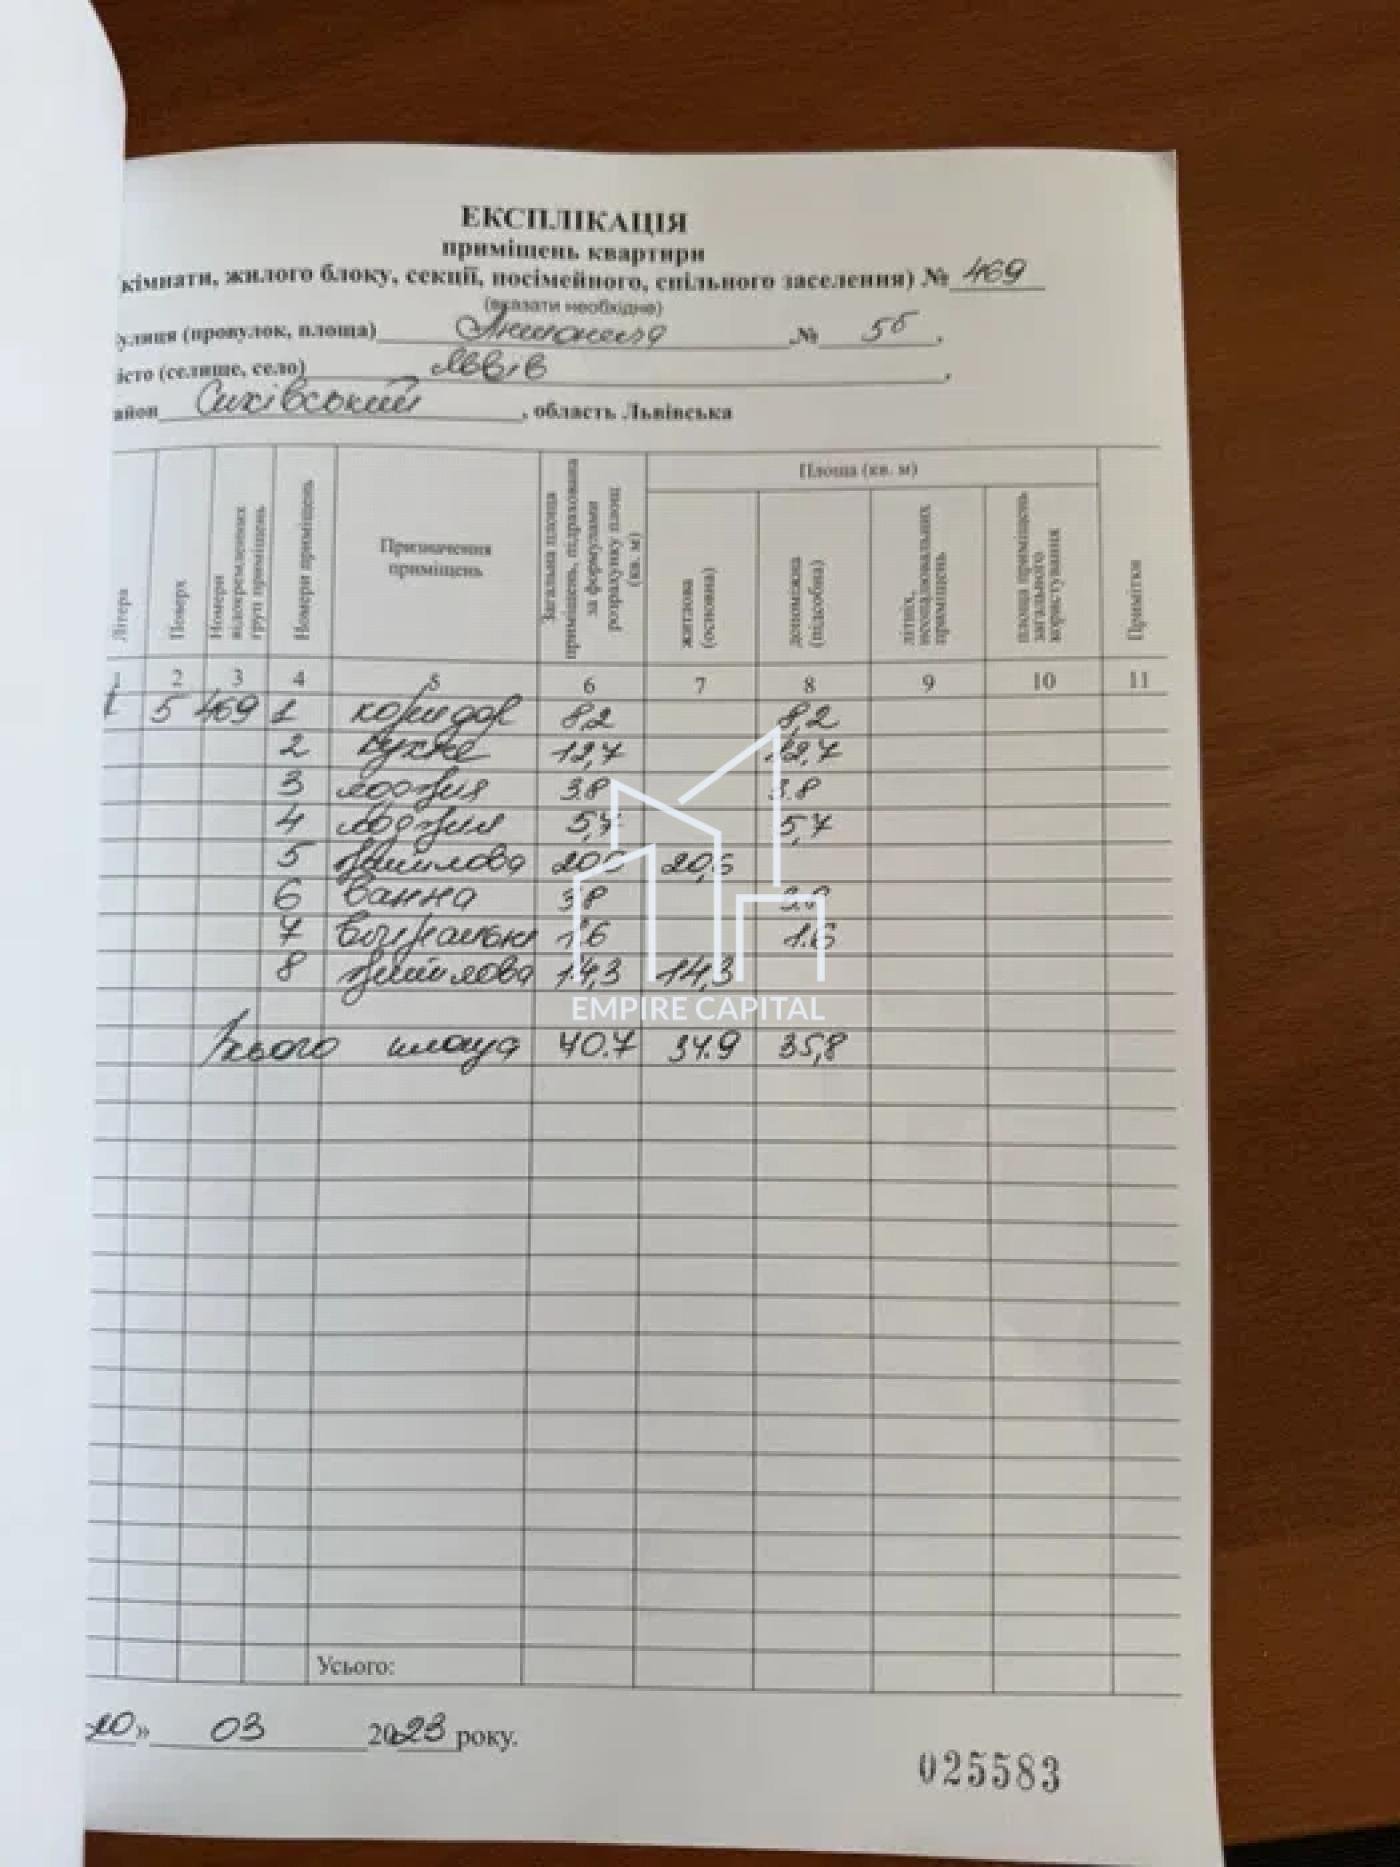 ЕКСПЛІКАЦІЯ
приміщень квартири
кімнати, жилого блоку, секції, посімейного, спільного заселення) № 469
(вказати необхідно)
улиця (провулок, площа) № 5б,
істо (селище, село) Львів,
айон Сихівський, область Львівська
Літера
Поверх
Номери відокремлених груп приміщень
Номери приміщень
Призначення приміщень
Загальна площа приміщень, підрахована за формулами розрахунку площ (кв. м)
Площа (кв. м)
житлова (основна)
допоміжна (підсобна)
літніх, неопалювальних приміщень
площа приміщень загального користування
Примітки
1 2 3 4 5 6 7 8 9 10 11
5 469 1 коридор 8,2 8,2
2 кухня 12,7 12,7
3 лоджия 3.8 3.8
4 лоджия 5,7 5,7
5 житлова 20,6 20,6
6 ванна 3.8 3.8
7 вбиральня 1.6 1.6
8 житлова 14,3 14,3
EMPIRE CAPITAL
площа 70.7 34.9 35,8
Усього:
20» 03 2023 року.
025583